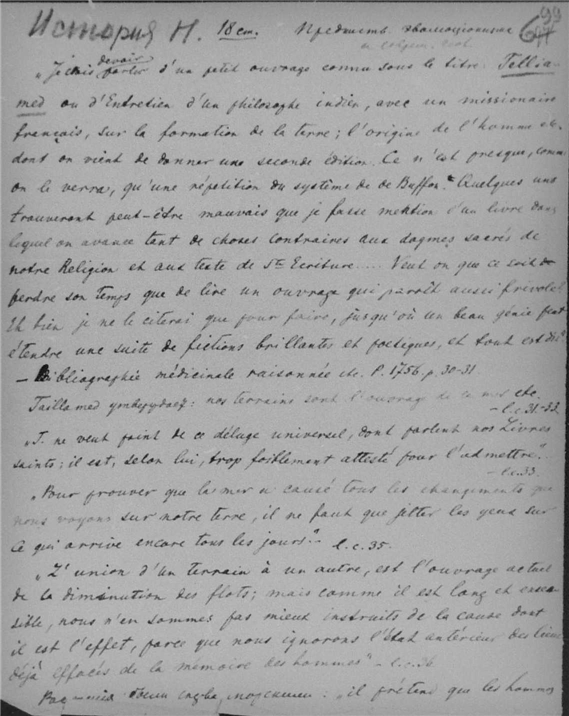 История Н. 18 ст. Предшеств. эволюционизма
99
devoir
„Je parler d'un petit ouvrage connu sous le titre Tellia-
med ou d'Entretien d'un philosophe indien, avec un missionaire
français, sur la formation de la terre; l'origine de l'homme etc.
dont on vient de donner une seconde édition. Ce n'est presque, comme
on le verra, qu'une répétition du système de de Buffon. Quelques uns
trouveront peut-être mauvais que je fasse mention d'un livre dans
lequel on avance tant de choses contraires aux dogmes sacrés de
notre Religion et aux texte de Ste Ecriture.... Veut on que ce soit
perdre son temps que de lire un ouvrage qui paroît aussi frivole?
Eh bien je ne le citerai que pour faire, jusqu'où un beau génie peut
étendre une suite de fictions brillantes et poetiques, et tout est dit"
— Bibliographie médicinale raisonnée etc. P. 1756. p. 30-31.
Taillamed утверждает: nos terrains sont l'ouvrage de la mer etc.
— l.c. 31-33.
„I. ne veut point de ce déluge universel, dont parlent nos Livres
saints; il est, selon lui, trop foiblement attesté pour l'admettre"...
— l.c. 33.
„Pour prouver que la mer a causé tous les changements que
nous voyons sur notre terre, il ne faut que jetter les yeux sur
ce qui arrive encore tous les jours" — l.c. 35.
„L'union d'un terrain à un autre, est l'ouvrage actuel
de la diminution des flots; mais comme il est long et insen-
sible, nous n'en sommes pas mieux instruits de la cause dont
il est l'effet, parce que nous ignorons l'état antérieur des lieux
déjà effacés de la mémoire des hommes" — l.c. 36
: „il prétend que les hommes